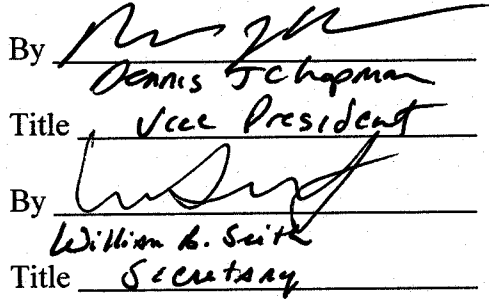 By
Dennis J Chapman
Title Vice President
By
William R. Smith
Title Secretary